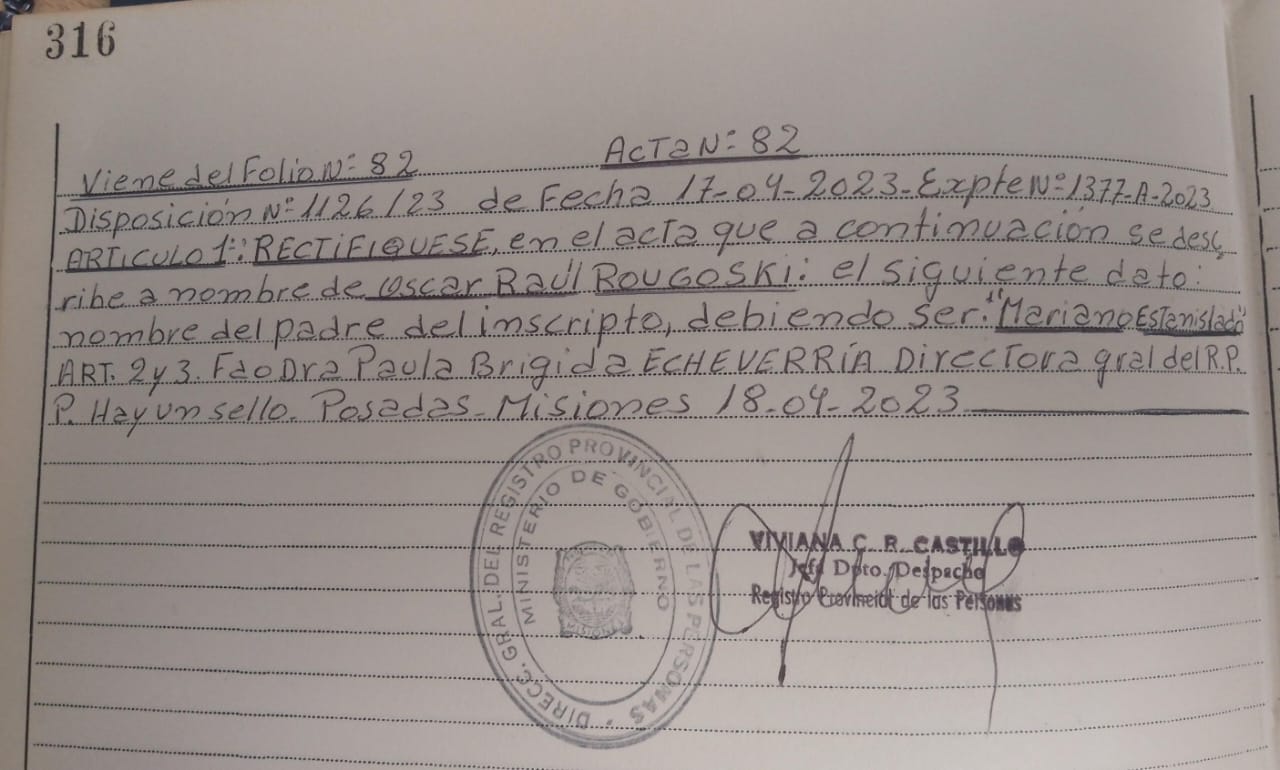 316
Viene del Folio Nº 82 Acta Nº 82
Disposición Nº 1126/23 de Fecha 17-04-2023-Expte Nº 1377-A-2023
ARTICULO 1º: RECTIFIQUESE, en el acta que a continuación se desc
ribe a nombre de Oscar Raúl ROUGOSKI: el siguiente dato:
nombre del padre del inscripto, debiendo ser: "Mariano Estanislado"
ART. 2 y 3. Fdo Dra Paula Brigida ECHEVERRÍA Directora gral del R.P.
P. Hay un sello. Posadas-Misiones 18-04-2023
DIRECC. GRAL. DEL REGISTRO PROVINCIAL DE LAS PERSONAS
MINISTERIO DE GOBIERNO
MISIONES
VIVIANA C. R. CASTILLO
Jefe Dpto. Despacho
Registro Provincial de las Personas